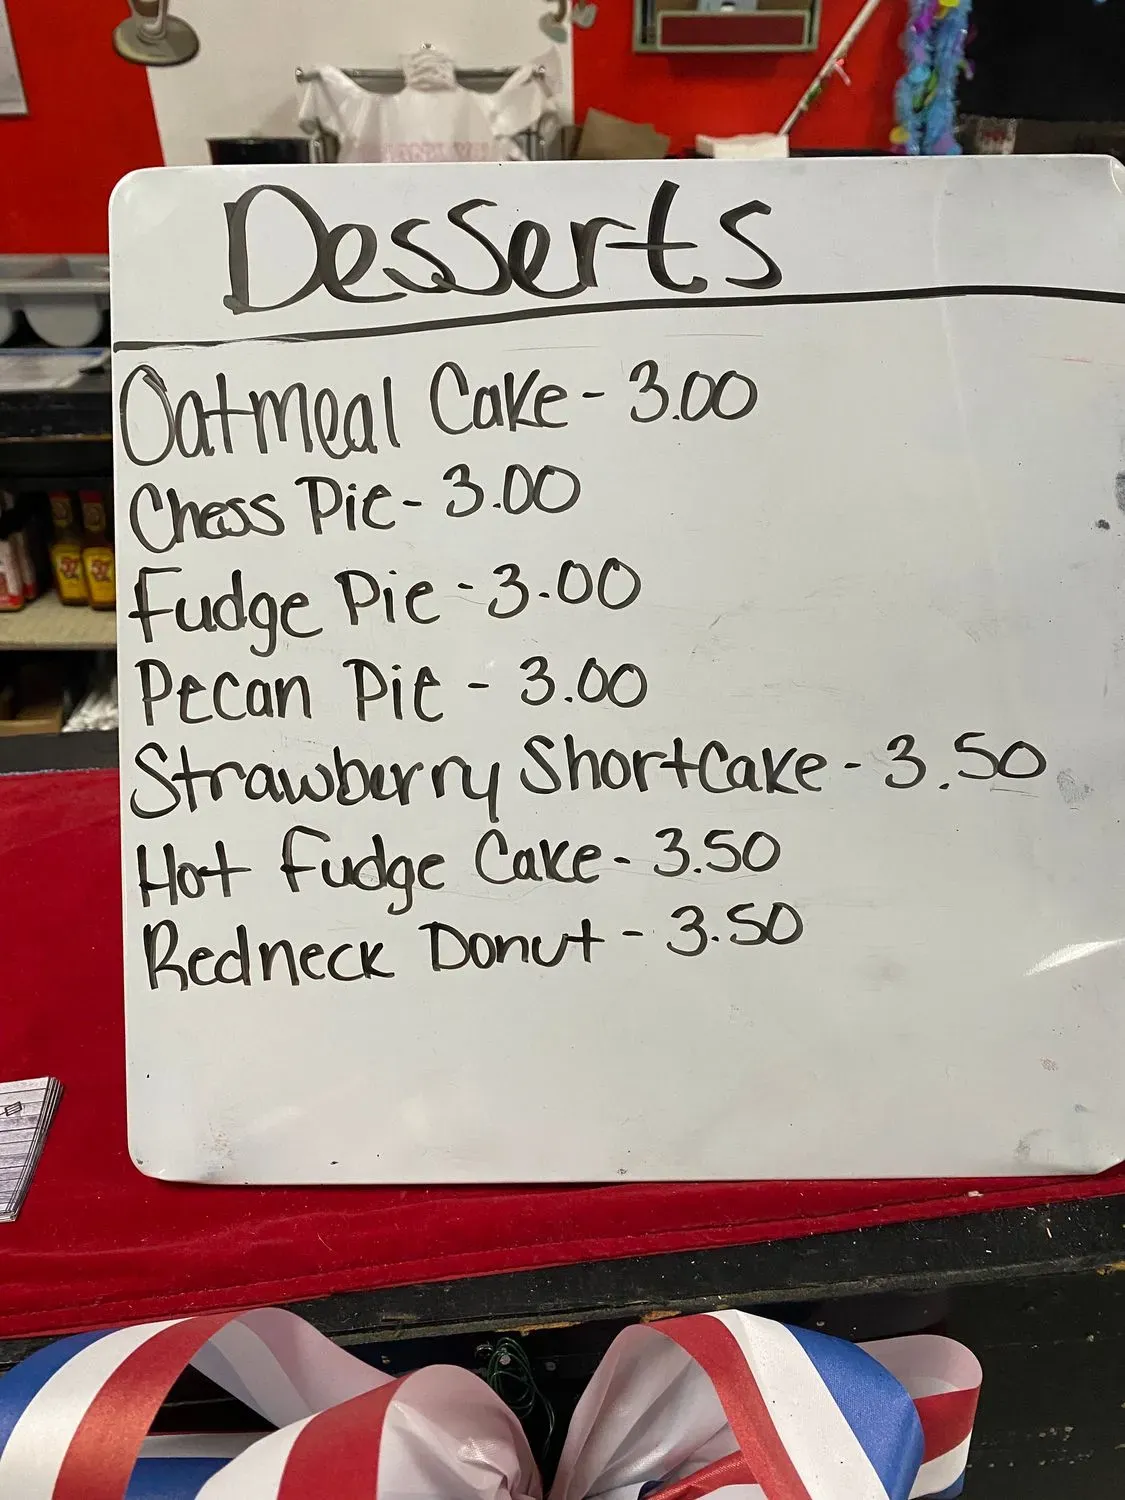 Desserts
Oatmeal Cake - 3.00
Chess Pie - 3.00
Fudge Pie - 3.00
Pecan Pie - 3.00
Strawberry Shortcake - 3.50
Hot Fudge Cake - 3.50
Redneck Donut - 3.50
57
57